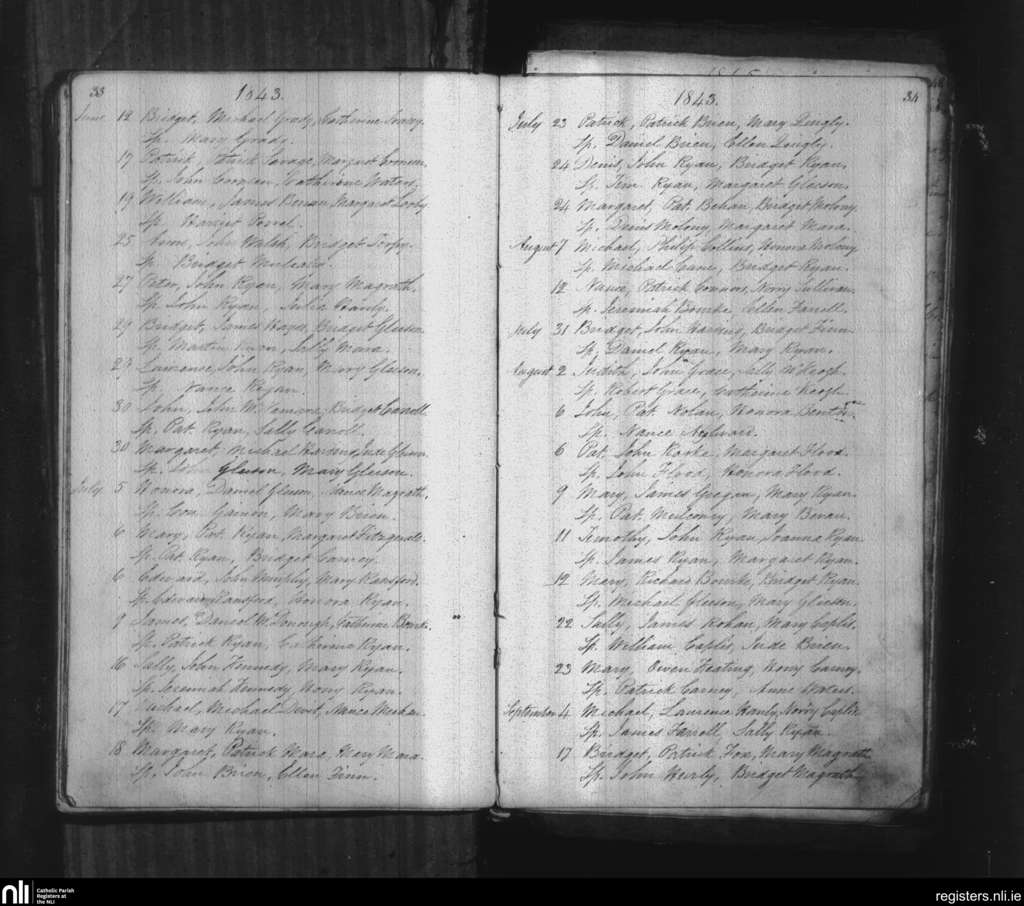 33
1843.
June 12 Bridget, Michael Grady, Catherine
Sp. Mary Grady.
17 Patrick, Patrick Savage, Margaret
Sp. John Catherine Waters.
19 William, James Margaret
Sp. Harriet
25 John Walsh, Bridget
Sp. Bridget
27 Peter, John Ryan, Mary Magrath.
Sp. John Ryan, Julia Hanly.
29 Bridget, James Hayes, Bridget Gleeson
Sp. Martin Sally Mara.
29 Laurence, John Ryan, Mary Gleeson.
Sp. Nance Ryan.
30 John, John Bridget Carroll.
Sp. Pat. Ryan, Sally Carroll.
30 Margaret, Michael Gleeson.
Sp. John Gleeson, Mary Gleeson.
July 5 Honora, Daniel Gleeson, Magrath.
Sp. Mary Brien.
6 Mary, Pat. Ryan, Margaret Fitzgerald.
Sp. Pat. Ryan, Bridget Carney.
6 Edward, John Murphy, Mary Ransford.
Sp. Edward Ransford, Honora Ryan.
9 James, Daniel McDonough, Catherine Bourke.
Sp. Patrick Ryan, Catherine Ryan.
16 Sally, John Kennedy, Mary Ryan.
Sp. Jeremiah Kennedy, Nony Ryan.
17 Michael, Michael Nance Meehan.
Sp. Mary Ryan.
18 Margaret, Patrick Mara, Mary Mara.
Sp. John Brien, Ellen Finn.
1843.
34
July 23 Patrick, Patrick Brien, Mary Quigly.
Sp. Daniel Brien, Ellen Quigly.
24 Denis, John Ryan, Bridget Ryan.
Sp. Tim. Ryan, Margaret Gleeson.
24 Margaret, Pat. Behan, Bridget Molony.
Sp. Denis Molony, Margaret Mara.
August 7 Michael, Philip Collins, Honora Molony
Sp. Michael Bridget Ryan.
12 Nance, Patrick Connors, Norry Sullivan.
Sp. Jeremiah Bourke, Ellen Farrell.
July 31 Bridget, John Harkins, Bridget Finn
Sp. Daniel Ryan, Mary Ryan.
August 2 Judith, John Grace, Sally
Sp. Robert Grace, Catherine Keogh.
6 John, Pat. Nolan, Honora
Sp. Nance Aylward.
6 Pat. John Rorke, Margaret Flood.
Sp. John Flood, Honora Flood.
9 Mary, James Geagan, Mary Ryan.
Sp. Pat. Mulconry, Mary Bevan.
11 Timothy, John Ryan, Joanna Ryan
Sp. James Ryan, Margaret Ryan.
12 Mary, Richard Bourke, Bridget Ryan.
Sp. Michael Gleeson, Mary Gleeson.
22 Sally, James Rohan, Mary Caplis.
Sp. William Caplis, Jude Brien.
23 Mary, Owen Keating, Nony Carney.
Sp. Patrick Carney, Anne Waters.
September 4 Michael, Laurence Hanly, Norry Caplis
Sp. James Farrell, Sally Ryan.
17 Bridget, Patrick Fox, Mary Magrath
Sp. John Bridget Magrath.
nli
Catholic Parish
Registers at
the NLI
registers.nli.ie